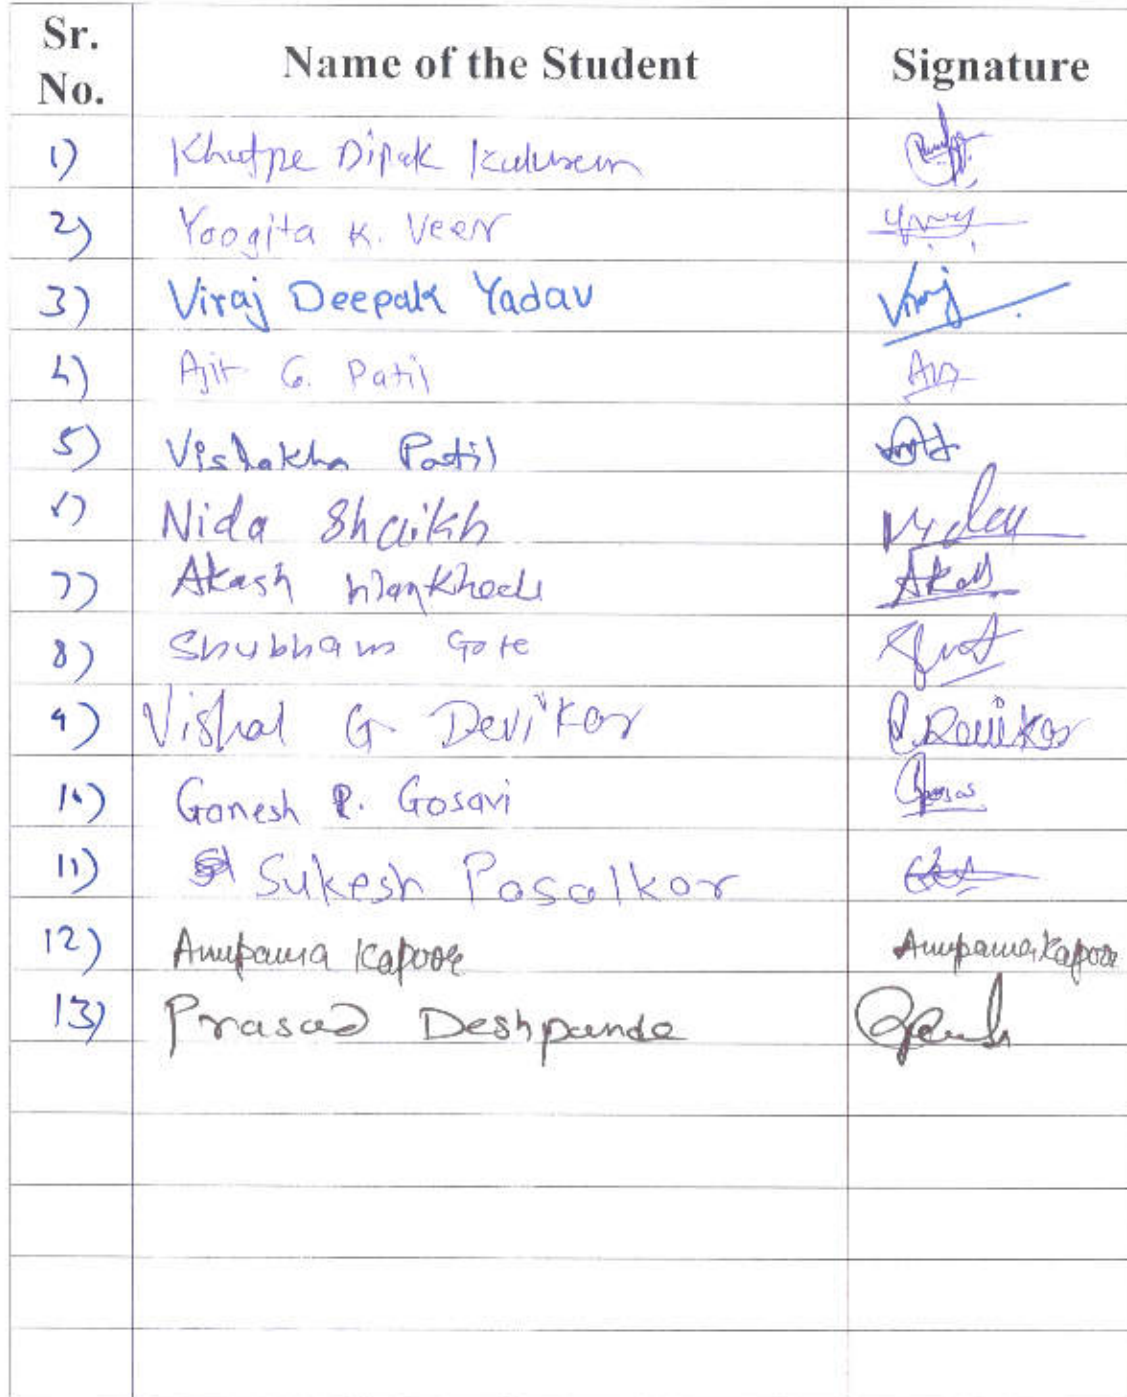 Sr. No. Name of the Student Signature
1) Khutpe Dipak
2) Yoogita K. Veer
3) Viraj Deepak Yadav Viraj
4) Ajit G. Patil
5) Vishakha Patil
6) Nida Shaikh
7) Akash Wankhede Akash
8) Shubham Gote
9) Vishal G. Devikar
10) Ganesh P. Gosavi
11) Sukesh Pasalkar
12) Anupama Kapoor Anupama Kapoor
13) Prasad Deshpande